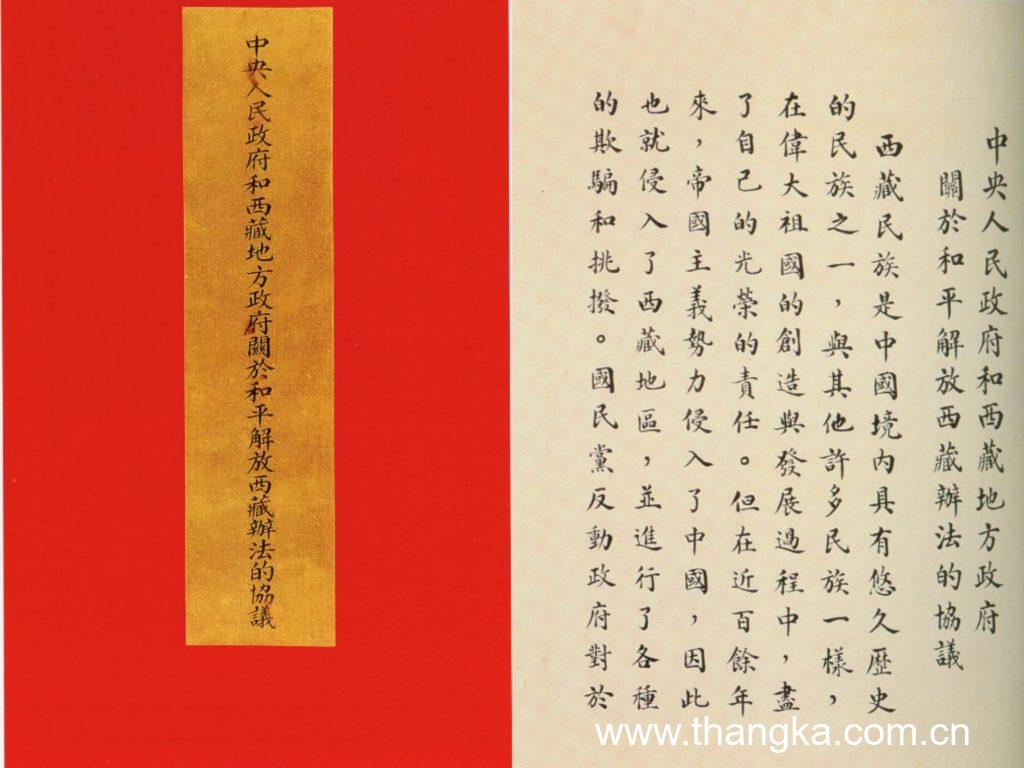 中央人民政府和西藏地方政府關於和平解放西藏辦法的協議
中央人民政府和西藏地方政府
關於和平解放西藏辦法的協議
西藏民族是中國境内具有悠久歷史
的民族之一，與其他許多民族一樣，
在偉大祖國的創造與發展過程中，盡
了自己的光榮的責任。但在近百餘年
來，帝國主義勢力侵入了中國，因此
也就侵入了西藏地區，並進行了各種
的欺騙和挑撥。國民黨反動政府對於
www.thangka.com.cn